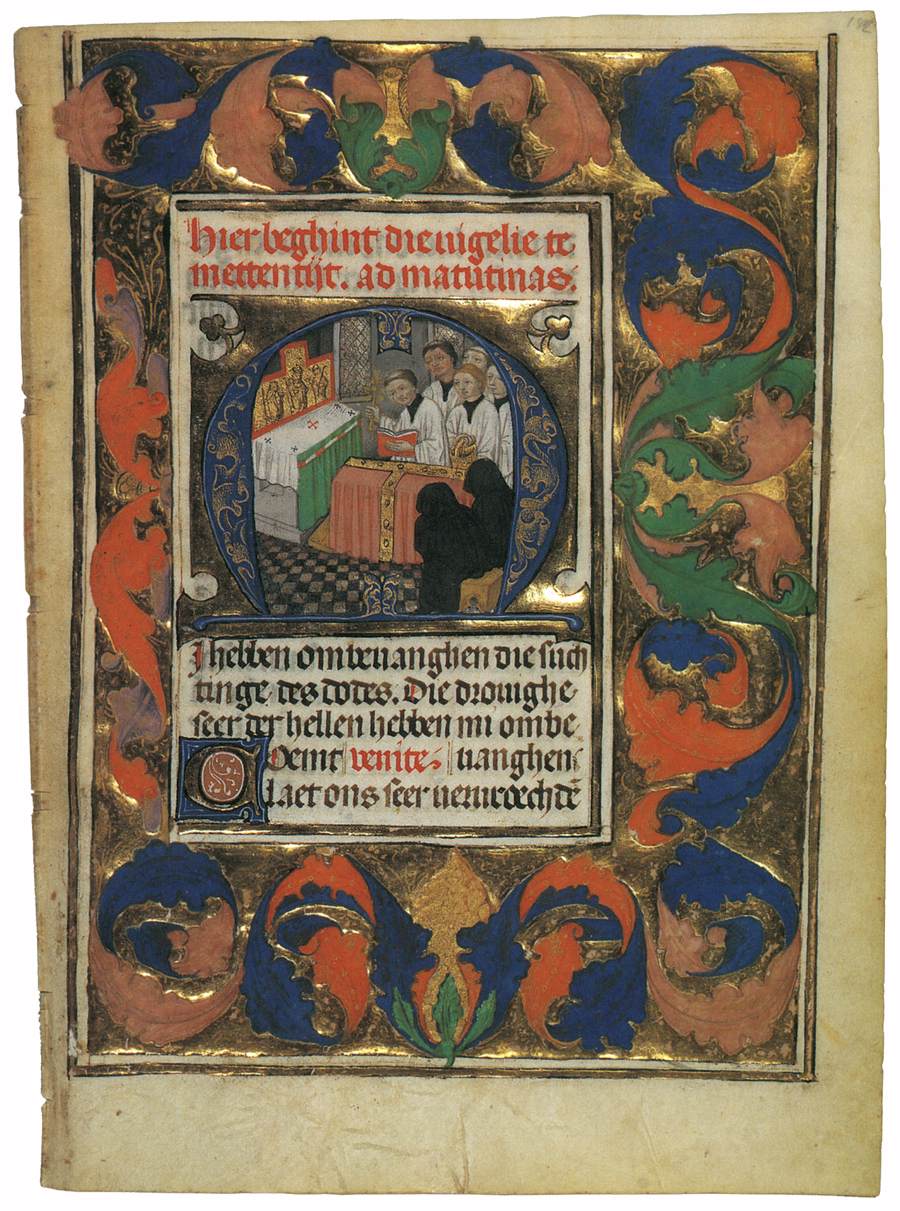 hier beghint die uigelie te
mettentijt. ad matutinas.
M
I hebben ombeuanghen die such
tinge des dodes. Die drouighe
seer der hellen hebben mi ombe
Coemt venite. uanghen
laet ons seer